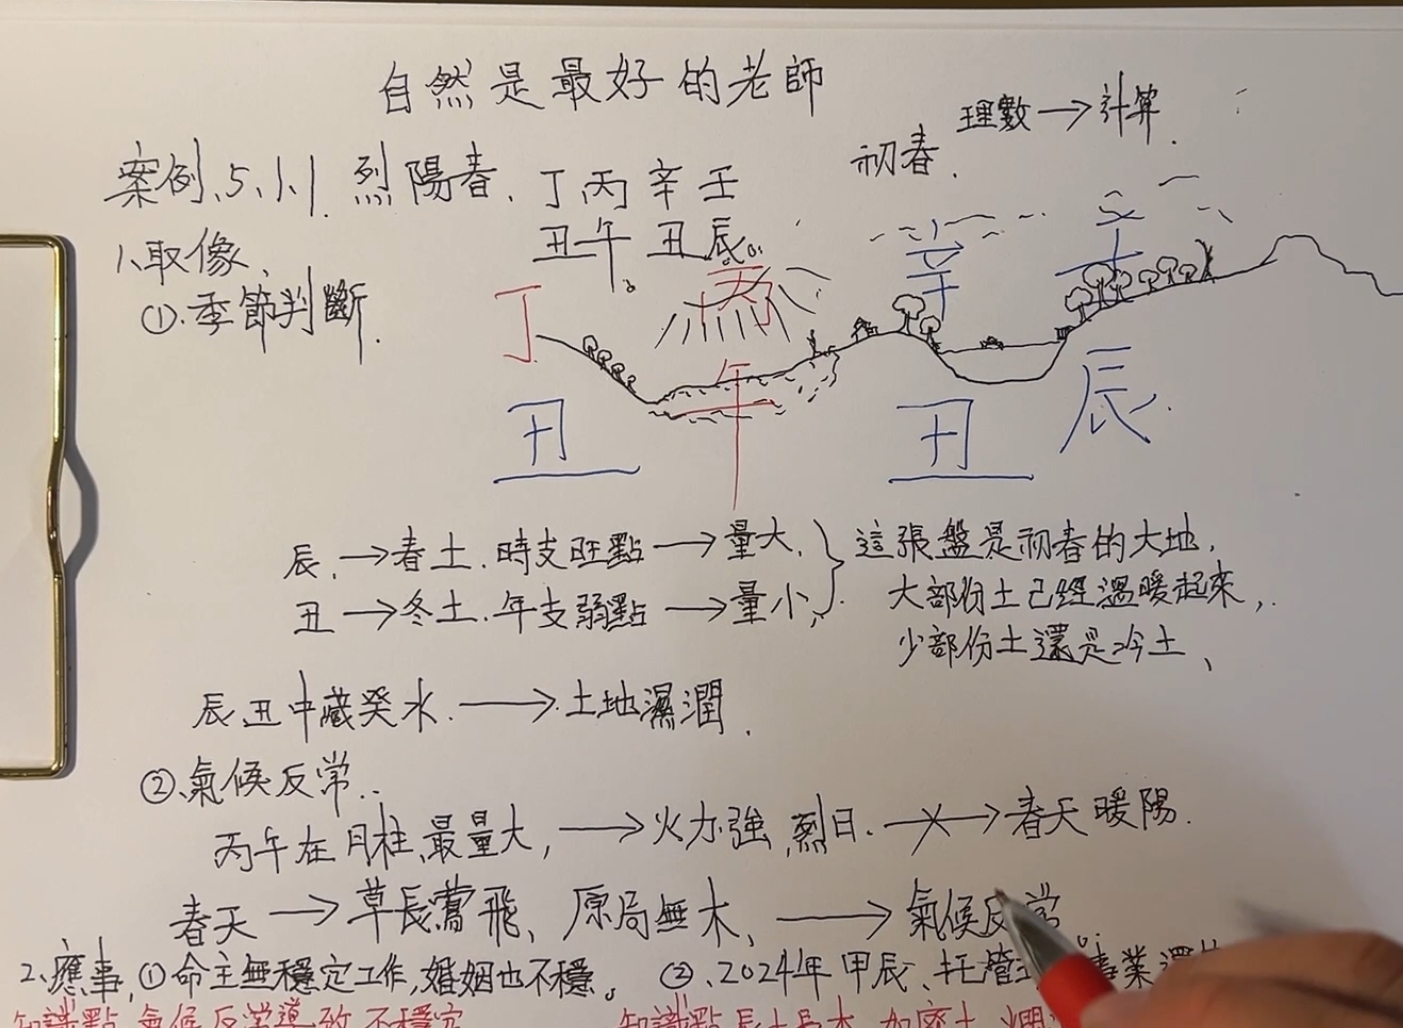 自然是最好的老師
理數→計算.
初春.
案例、5、1、1. 烈陽春、丁丙辛壬
丑午丑辰
1、取像、
①、季節判斷.
丁 丙 辛 壬
丑 午 丑 辰
辰.→春土.時支旺點→量大、
丑→冬土.年支弱點→量小、
這張盤是初春的大地,
大部份土已經溫暖起來,
少部份土還是冷土、
辰丑中藏癸水.→土地濕潤.
②、氣候反常..
丙午在月柱、最量大,→火力強,烈日.→春天暖陽.
春天→草長鶯飛、原局無木、→氣候反常
2、應事、①命主無穩定工作,婚姻也不穩。 ②、2024年甲辰、托管 事業還
知識點 氣候反常導致不穩定
知識點